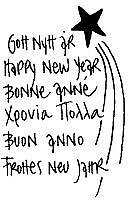 Gott Nytt år
Happy New Year
Bonne Anne
Χρονια Πολλα
Buon Anno
Frohes Neu Jahr